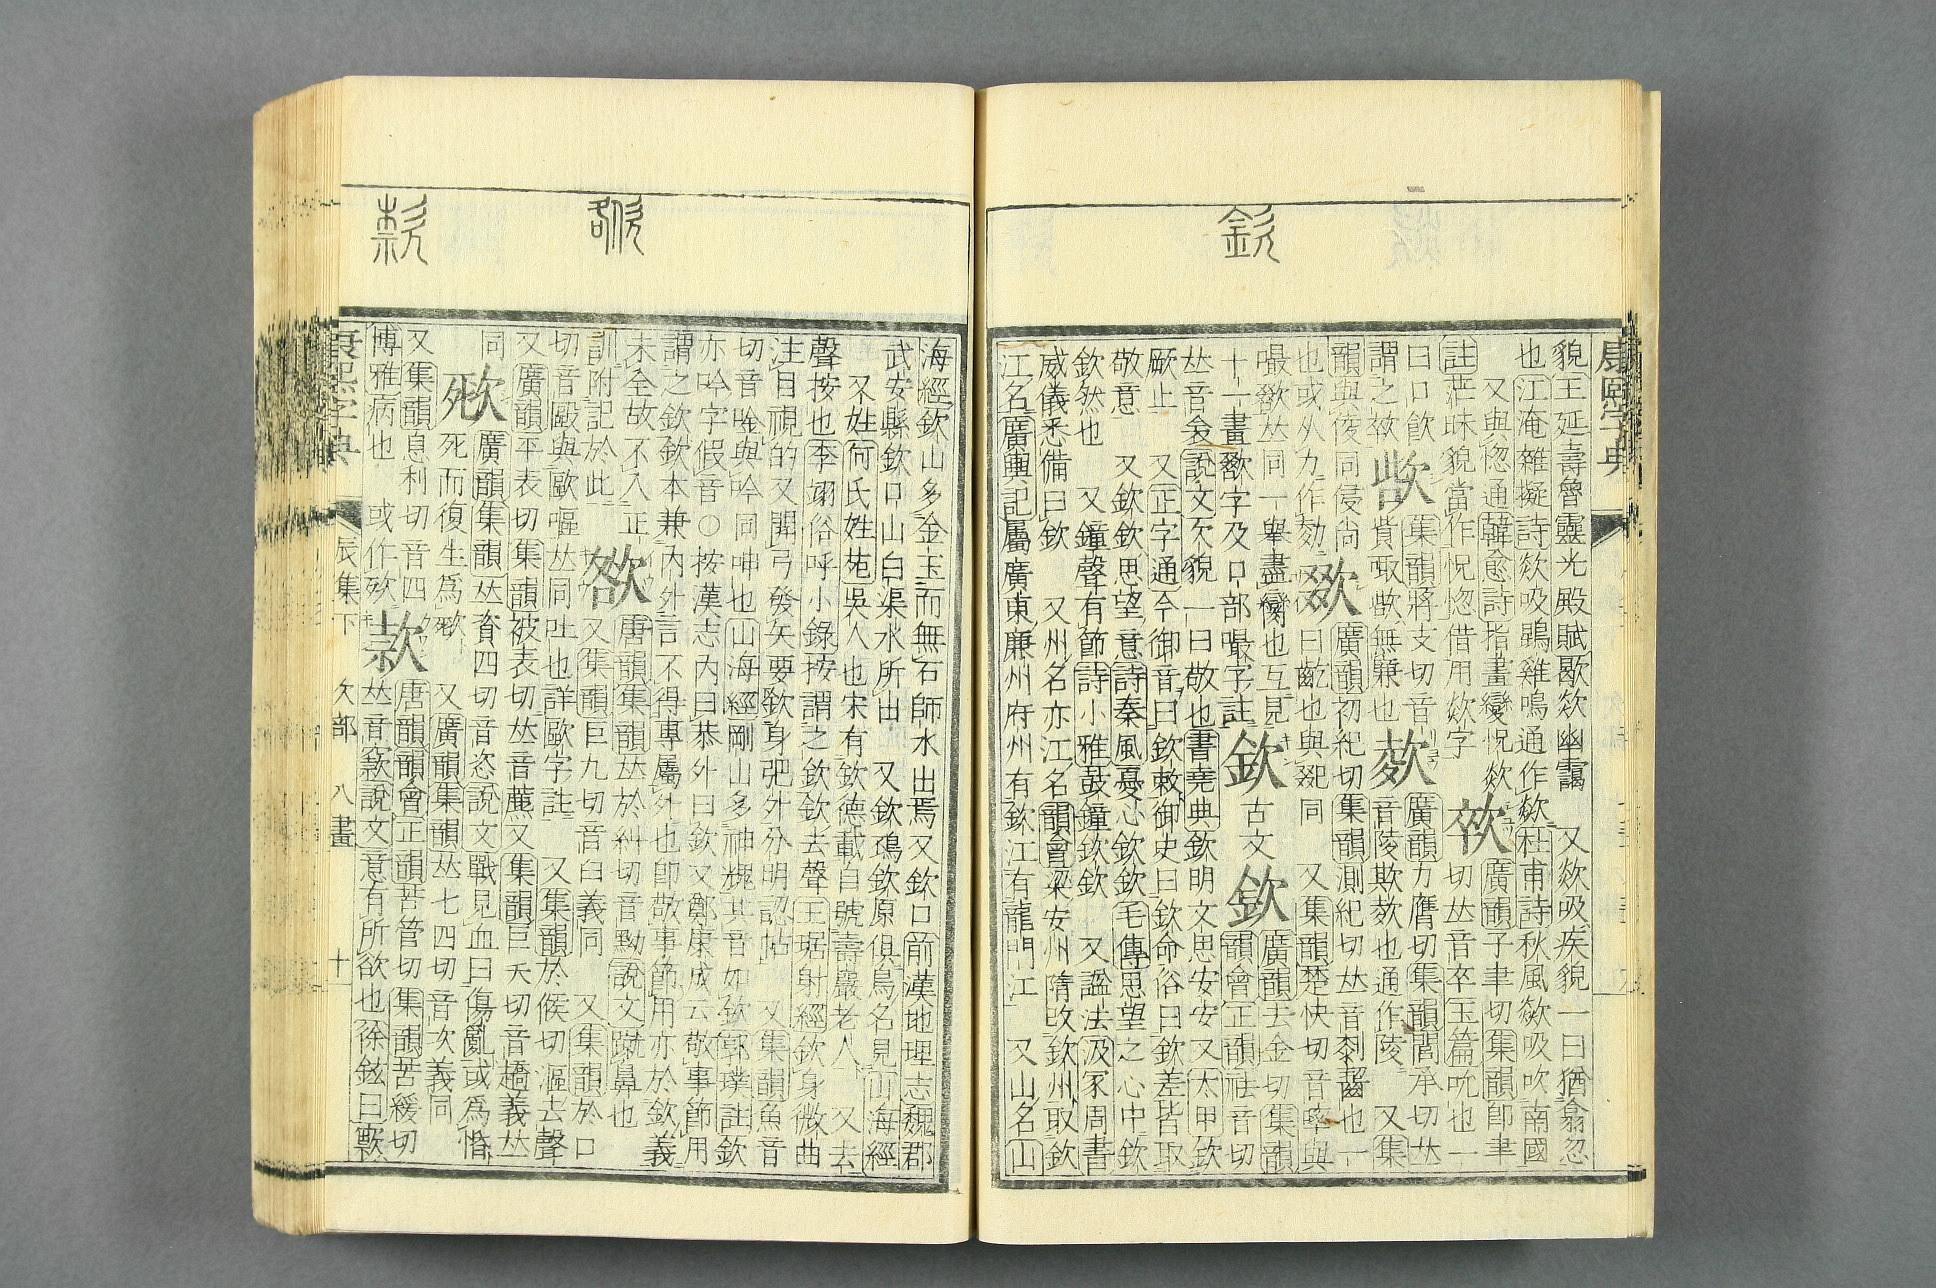 康熙字典
貌王延壽魯靈光殿賦歇欻幽靄 又欻吸疾貌一曰猶翕忽
也江淹雜擬詩欻吸鵾雞鳴通作欻杜甫詩秋風欻吸吹南國
又與惚通韓愈詩指畫變怳欻
註茫昧貌當作怳惚借用欻字
廣韻子聿切集韻卽聿
切𠀤音卒玉篇吮也一
曰口飮
謂之
㰣
集韻將支切音
㰣無兼也
廣韻力膺切集韻閭承切𠀤
音陵欺也通作陵 又集
韻與㥄同侵尙
也或从力作
廣韻初紀切集韻測紀切𠀤音齧也一
曰齝也與同 又集韻楚快切音與
嘬𠀤同一舉盡臠也互見
十一畫字及口部嘬字註
欽
古文
廣韻去金切集韻
韻會正韻祛音切
𠀤音衾說文欠貌 一曰敬也書堯典欽明文思安安 又太甲欽
厥止 又正字通今御音曰欽敕御史曰欽命俗曰欽差皆取
敬意 又欽欽思望意詩秦風憂心欽欽毛傳思望之心中欽
欽然也 又鐘聲有節詩小雅鼓鐘欽欽 又諡法汲冢周書
威儀悉備曰欽 又州名亦江名韻會梁安州隋改欽州取欽
江名廣輿記屬廣東廉州府州有欽江有龍門江 又山名山
海經欽山多金玉而無石師水出焉又欽口前漢地理志魏郡
武安縣欽口山白渠水所出 又欽䲹欽原俱鳥名見山海經
又姓何氏姓苑吳人也宋有欽德載自號壽巖老人 又去
聲按也李翊俗呼小錄按謂之欽欽去聲王琚射經欽身微曲
注目視的又開弓發矢要欽身弝外分明認帖 又集韻魚音
切音吟與吟同呻也山海經剛山多神其音如欽郭璞註欽
亦吟字假音○按漢志內曰恭外曰欽又鄭康成云敬事節用
謂之欽欽本兼內外言不得專屬外也卽敬事節用亦於欽義
未全故不入正
訓附記於此
㰶
唐韻集韻𠀤於糾切音黝說文蹴鼻也
又集韻巨九切音臼義同 又集韻於口
切音毆與歐嘔𠀤同吐也詳歐字註 又集韻於候切漚去聲
又廣韻平表切集韻被表切𠀤音藨又集韻巨夭切音義𠀤
同
廣韻集韻𠀤資四切音恣說文戰見血曰傷亂或爲惛
死而復生爲 又廣韻集韻𠀤七四切音次義同
又集韻息利切音四
博雅病也 或作
款
唐韻韻會正韻苦管切集韻苦緩切
𠀤音窾說文意有所欲也徐鉉曰窾
康熙字典 辰集下 欠部 八畫 十一